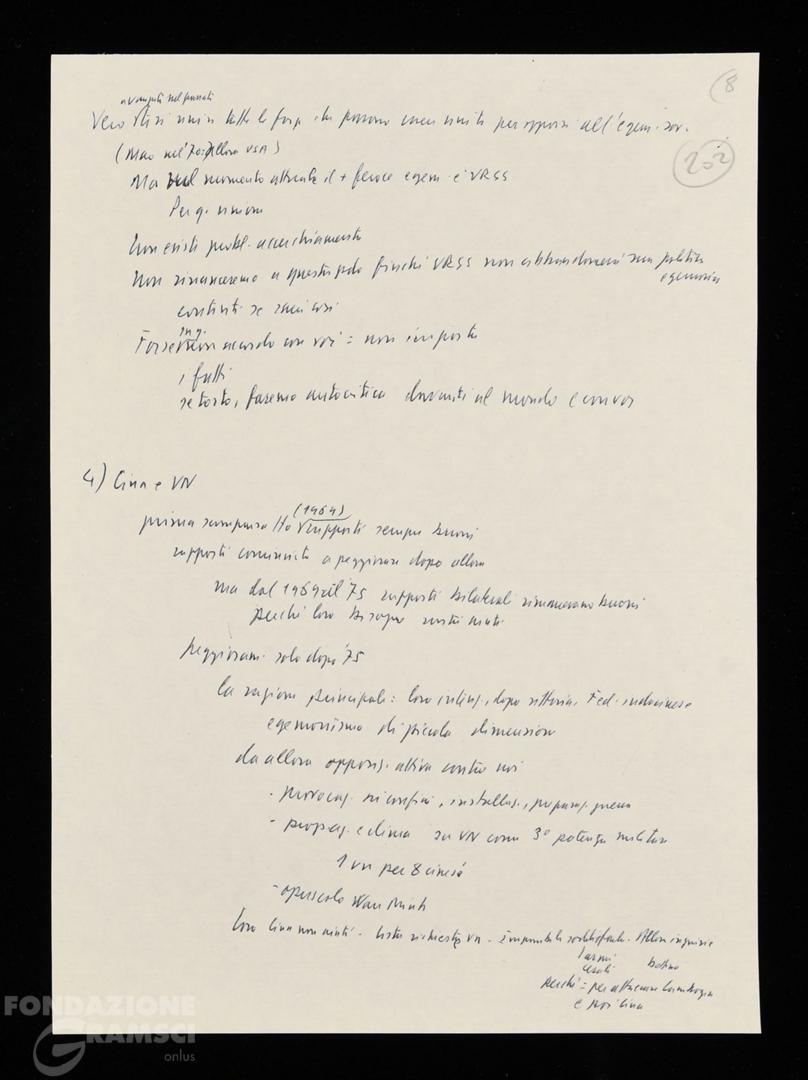 (8
avanzati nel passati
Vero unir tutte le forze che possono unirsi per opporsi all'egem. sov.
202
(Mao nel 70: Allora USA)
Ma nel momento attuale il + feroce egem. è URSS
Per q. unione
Non esiste probl. accerchiamento
Non rinunceremo a questo finché URSS non abbandonerà sua politica
egemonia
continti se
Forse non accordo con voi = non importa
i fatti
se torto, faremo autocritica davanti al mondo e con voi
4) Cina e VN
(1969)
prima scomparsa Ho rapporti sempre buoni
rapporti cominciato a peggiorare dopo allora
ma dal 1969 al '75 rapporti bilaterali rimanevano buoni
perché loro bisogno nostri aiuti
peggioram. solo dopo '75
la ragione principale: loro intenz., dopo vittoria, Fed. indocinese
egemonismo di piccola dimensione
da allora oppos. attiva contro noi
- provocaz. ai confini, installaz., preparaz. guerra
- propag. e clima su VN come 3° potenza militare
1 vn per 8 cinesi
- opuscolo
loro Cina non aiuti - lista richieste vn - soddisfarle. Allora ingiurie
armi
perché = per attaccare Cambogia
e poi Cina
FONDAZIONE
GRAMSCI
onlus